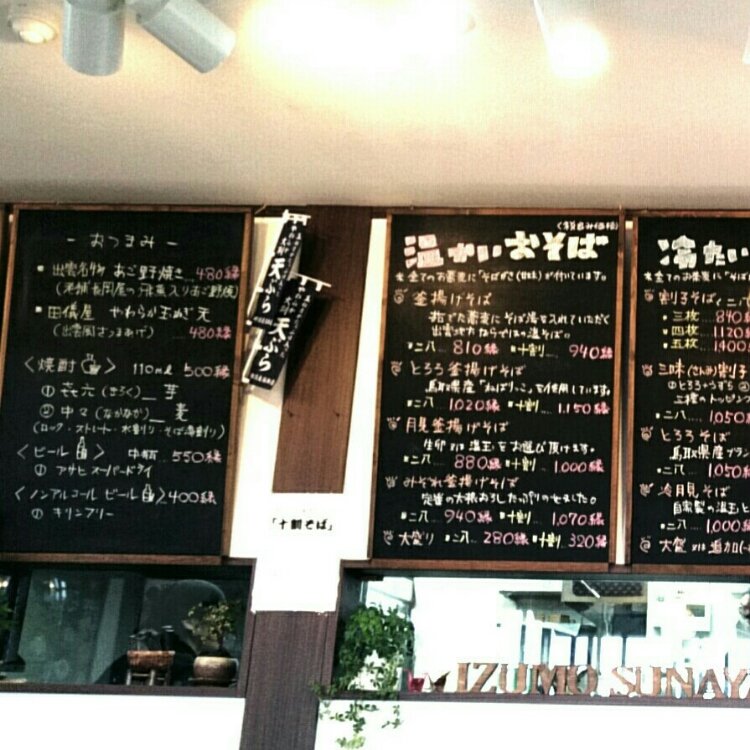 - おつまみ -
出雲名物 あご野焼き… 480縁
田儀屋 やわらか玉ねぎ天
(出雲風さつまあげ) 480縁
〈焼酎〉 110ml 500縁
① 㐂六(きろく)_ 芋
② 中々(なかなか)_ 麦
(ロック・ストレート・水割り・そば湯割り)
〈ビール〉 中瓶… 550縁
① アサヒスーパードライ
〈ノンアルコールビール〉400縁
① キリンフリー
天ぷら
天ぷら
「十割そば」
(税込み価格)
温かいおそば
※全てのお蕎麦に「そばがき(甘味)」が付いています。
釜揚げそば
茹でた蕎麦にそば湯を入れていただく
出雲地方ならではの温そば。
・二八 810縁 ・十割… 940縁
とろろ釜揚げそば
鳥取県産「ねばりっこ」を使用しています。
・二八 1,020縁 ・十割… 1,150縁
月見釜揚げそば
生卵 又は 温玉をお選び頂けます。
・二八… 880縁 ・十割… 1,000縁
みぞれ釜揚げそば
定番の大根おろしたっぷりのせました。
・二八… 940縁 ・十割… 1,070縁
大盛り ・二八… 280縁 ・十割… 320縁
冷たい
※全てのお蕎麦に「そば
割子そば(二八
・三枚… 840
・四枚 1120
・五枚 1400
三味(さんみ)割子
①とろろ②うずら③
三種のトッピング
・二八… 1,050
とろろそば
鳥取県産ブラン
・二八… 1,050
冷月見そば
自家製の温玉と
・二八… 1,000
大盛 又は 追加(
IZUMO SUNAY